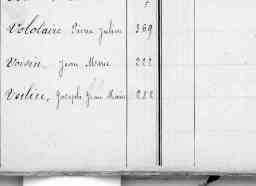 Volotaire Pierre Julien 369
Voisin, Jean Marie 222
Vulin, Joseph Jean Marie 282